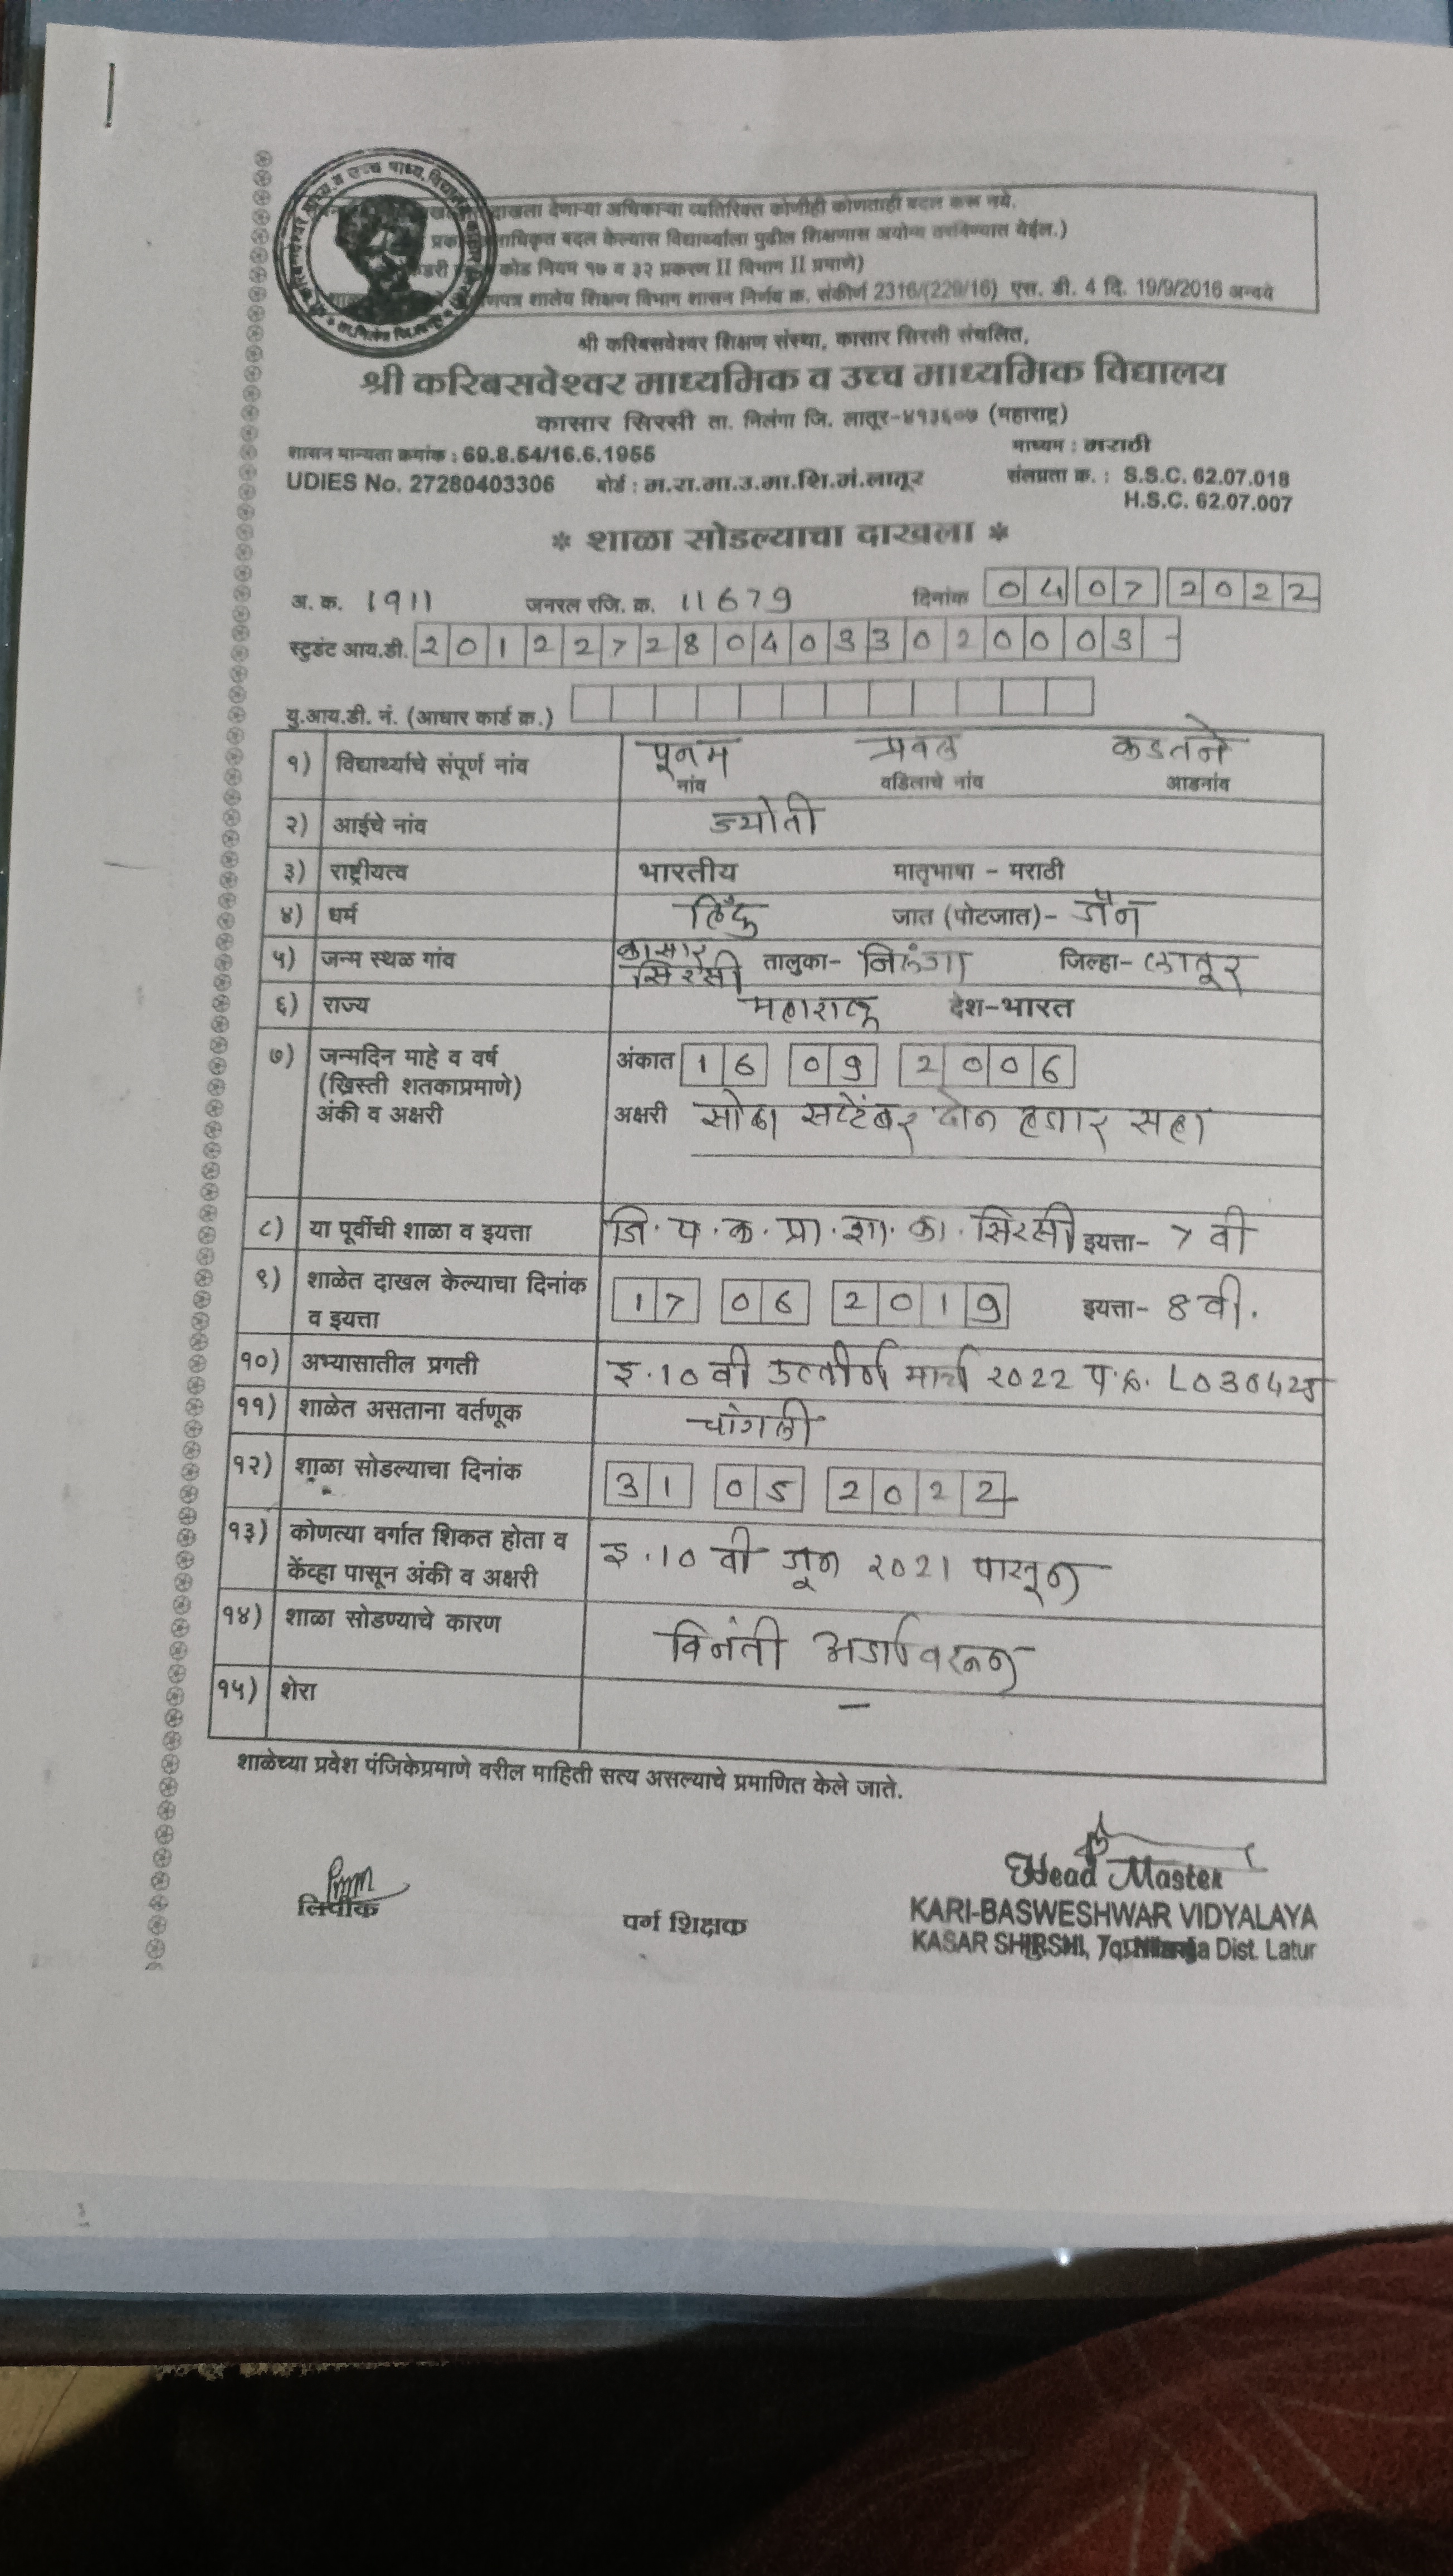 दाखला देणाऱ्या अधिकाऱ्या व्यतिरिक्त कोणीही कोणताही बदल करू नये.
अनाधिकृत बदल केल्यास विद्यार्थ्याला पुढील शिक्षणास अयोग्य ठरविण्यात येईल.)
कोड नियम १७ व ३२ प्रकरण II विभाग II प्रमाणे)
शालेय शिक्षण विभाग शासन निर्णय क्र. संकीर्ण 2316/(229/16) एस. डी. 4 दि. 19/9/2016 अन्वये
श्री करिबसवेश्वर शिक्षण संस्था, कासार सिरसी संचलित,
श्री करिबसवेश्वर माध्यमिक व उच्च माध्यमिक विद्यालय
कासार सिरसी ता. निलंगा जि. लातूर-४१३६०७ (महाराष्ट्र)
शासन मान्यता क्रमांक : 69.8.54/16.6.1955 माध्यम : मराठी
UDIES No. 27280403306 बोर्ड : म.रा.मा.उ.मा.शि.मं.लातूर संलग्नता क्र. : S.S.C. 62.07.018
H.S.C. 62.07.007
* शाळा सोडल्याचा दाखला *
अ. क. 1911 जनरल रजि. क्र. 11679 दिनांक 04 07 2022
स्टुडंट आय.डी. 2012272804033020003 -
यु.आय.डी. नं. (आधार कार्ड क्र.)
१) विद्यार्थ्याचे संपूर्ण नांव पूनम कडतने
नांव वडिलाचे नांव आडनांव
२) आईचे नांव ज्योती
३) राष्ट्रीयत्व भारतीय मातृभाषा - मराठी
४) धर्म हिंदू जात (पोटजात)- जैन
५) जन्म स्थळ गांव कासार सिरसी तालुका- निलंगा जिल्हा- लातूर
६) राज्य महाराष्ट्र देश-भारत
७) जन्मदिन माहे व वर्ष अंकात 16 09 2006
(ख्रिस्ती शतकाप्रमाणे)
अंकी व अक्षरी अक्षरी सोळा सप्टेंबर दोन हजार सहा
८) या पूर्वीची शाळा व इयत्ता जि.प.क.प्रा.शा.का.सिरसी इयत्ता- 7 वी
९) शाळेत दाखल केल्याचा दिनांक 17 06 2019 इयत्ता- 8 वी.
व इयत्ता
१०) अभ्यासातील प्रगती इ.10 वी उत्तीर्ण मार्च 2022 प.क्र. L030425
११) शाळेत असताना वर्तणूक चांगली
१२) शाळा सोडल्याचा दिनांक 31 05 2022
१३) कोणत्या वर्गात शिकत होता व इ.10 वी जून 2021 पासून
केंव्हा पासून अंकी व अक्षरी
१४) शाळा सोडण्याचे कारण विनंती अर्जावरून
१५) शेरा -
शाळेच्या प्रवेश पंजिकेप्रमाणे वरील माहिती सत्य असल्याचे प्रमाणित केले जाते.
Head Master
लिपीक वर्ग शिक्षक KARI-BASWESHWAR VIDYALAYA
KASAR SHIRSHI, Tq. Nilanga Dist. Latur